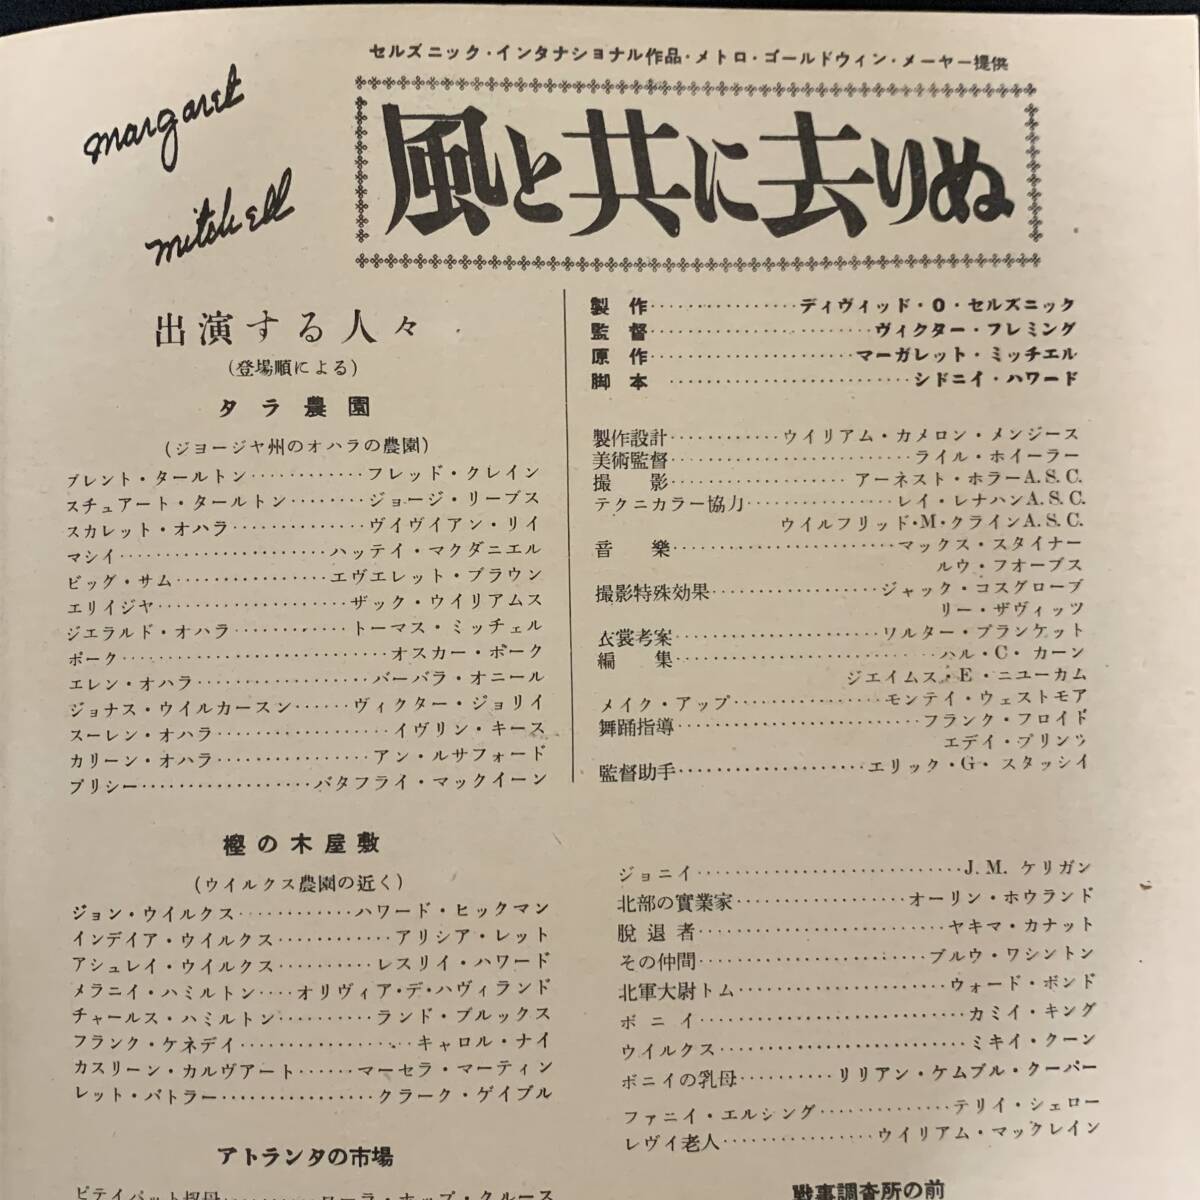 セルズニック・インタナショナル作品・メトロ・ゴールドウィン・メーヤー提供
margaret
mitchell
風と共に去りぬ
出演する人々
(登場順による)
タラ農園
(ジヨージヤ州のオハラの農園)
ブレント・タールトン‥‥‥‥‥フレッド・クレイン
スチュアート・タールトン‥‥‥‥ジョージ・リーブス
スカレット・オハラ‥‥‥‥‥‥ヴイヴイアン・リイ
マシイ‥‥‥‥‥‥‥‥‥ハッテイ・マクダニエル
ビッグ・サム‥‥‥‥‥‥‥エヴエレット・ブラウン
エリイジヤ‥‥‥‥‥‥‥‥ザック・ウイリアムス
ジエラルド・オハラ‥‥‥‥‥トーマス・ミッチェル
ポーク‥‥‥‥‥‥‥‥‥‥‥オスカー・ポーク
エレン・オハラ‥‥‥‥‥‥‥バーバラ・オニール
ジョナス・ウイルカースン‥‥‥ヴィクター・ジョリイ
スーレン・オハラ‥‥‥‥‥‥‥イヴリン・キース
カリーン・オハラ‥‥‥‥‥‥アン・ルサフォード
プリシー‥‥‥‥‥‥‥‥バタフライ・マックイーン
製作‥‥‥‥‥‥‥ディヴィッド・O・セルズニック
監督‥‥‥‥‥‥‥‥‥‥ヴィクター・フレミング
原作‥‥‥‥‥‥‥‥‥マーガレット・ミッチエル
脚本‥‥‥‥‥‥‥‥‥‥‥シドニイ・ハワード
製作設計‥‥‥‥‥ウイリアム・カメロン・メンジース
美術監督‥‥‥‥‥‥‥‥‥‥ライル・ホイーラー
撮影‥‥‥‥‥‥‥‥アーネスト・ホラーA.S.C.
テクニカラー協力‥‥‥‥‥‥レイ・レナハンA.S.C.
ウイルフリッド・M・クラインA.S.C.
音樂‥‥‥‥‥‥‥‥‥‥マックス・スタイナー
ルウ・フオーブス
撮影特殊効果‥‥‥‥‥‥‥ジャック・コスグローブ
リー・ザヴィッツ
衣裳考案‥‥‥‥‥‥‥‥ワルター・プランケット
編集‥‥‥‥‥‥‥‥‥‥‥ハル・C・カーン
ジエイムス・E・ニユーカム
メイク・アップ‥‥‥‥‥‥モンテイ・ウェストモア
舞踊指導‥‥‥‥‥‥‥‥‥‥フランク・フロイド
エデイ・プリンツ
監督助手‥‥‥‥‥‥‥エリック・G・スタッシイ
樫の木屋敷
(ウイルクス農園の近く)
ジョン・ウイルクス‥‥‥‥‥ハワード・ヒックマン
インデイア・ウイルクス‥‥‥‥‥アリシア・レット
アシュレイ・ウイルクス‥‥‥‥レスリイ・ハワード
メラニイ・ハミルトン‥‥オリヴィア・デ・ハヴィランド
チャールス・ハミルトン‥‥‥‥ランド・ブルックス
フランク・ケネデイ‥‥‥‥‥‥‥キャロル・ナイ
カスリーン・カルヴアート‥‥‥マーセラ・マーティン
レット・バトラー‥‥‥‥‥‥クラーク・ゲイブル
アトランタの市場
ピテイパット叔母‥‥‥‥ローラ・ホップ・クルース
ジョニイ‥‥‥‥‥‥‥‥‥‥‥J.M. ケリガン
北部の實業家‥‥‥‥‥‥‥オーリン・ホウランド
脫退者‥‥‥‥‥‥‥‥‥‥ヤキマ・カナット
その仲間‥‥‥‥‥‥‥‥ブルウ・ワシントン
北軍大尉トム‥‥‥‥‥‥‥‥ウォード・ボンド
ボニイ‥‥‥‥‥‥‥‥‥‥‥カミイ・キング
ウイルクス‥‥‥‥‥‥‥‥‥‥ミキイ・クーン
ボニイの乳母‥‥‥‥リリアン・ケムブル・クーパー
ファニイ・エルシング‥‥‥‥‥‥テリイ・シェロー
レヴイ老人‥‥‥‥‥‥ウイリアム・マックレイン
戰事調査所の前